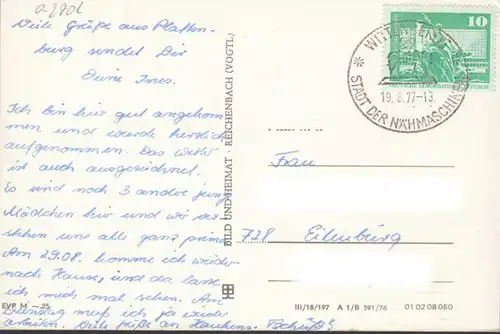 a 270l
Viele Grüße aus Platten-
burg sendet Dir
Deine Ines.
Ich bin hier gut angekom
men und wurde herzlich
aufgenommen. Das Wetter
ist auch ausgezeichnet.
Es sind noch 3 andre junge
Mädchen hier und wir ver-
stehen uns alle ganz prima
Am 29.08. komme ich wieder
nach Hause, und da lasse
ich mich mal sehen. Am
Dienstag muß ich ja wieder
arbeiten. Viele Grüße an
Tschüß!
EVP M —,25
BILD UND HEIMAT · REICHENBACH (VOGTL)
10
WITTENBERGE
19.8.77-13
STADT DER NÄHMASCHINEN
Frau
728 Eilenburg
III/18/197 A 1/B 591/76 01 02 08 050